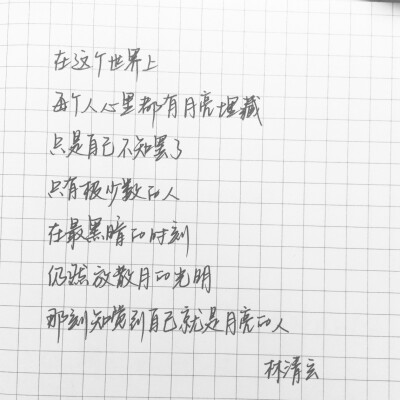 在这个世界上
每个人心里都有月亮埋藏
只是自己不知罢了
只有极少数的人
在最黑暗的时刻
仍然放散月的光明
那刻知觉到自己就是月亮的人
林清玄